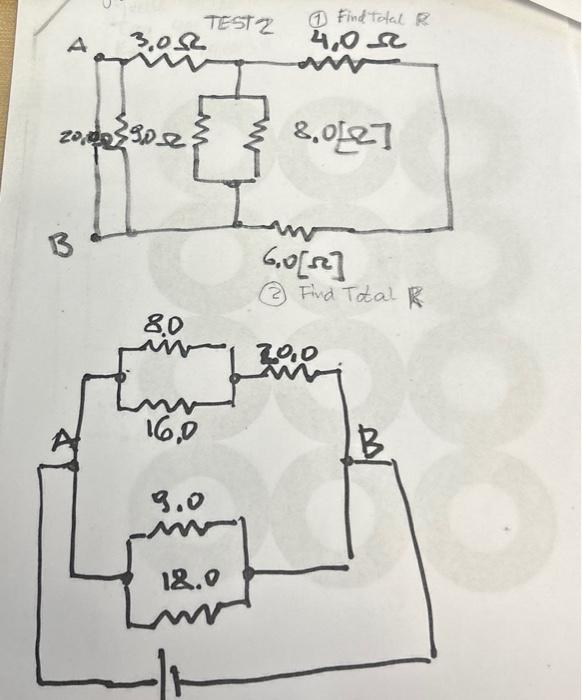 TEST 2 ① Find Total R
A 3,0 Ω 4,0 Ω
9,0 Ω 8,0[Ω]
B
6,0[Ω]
② Find Total R
8,0
20,0
16,0
A B
9,0
18.0